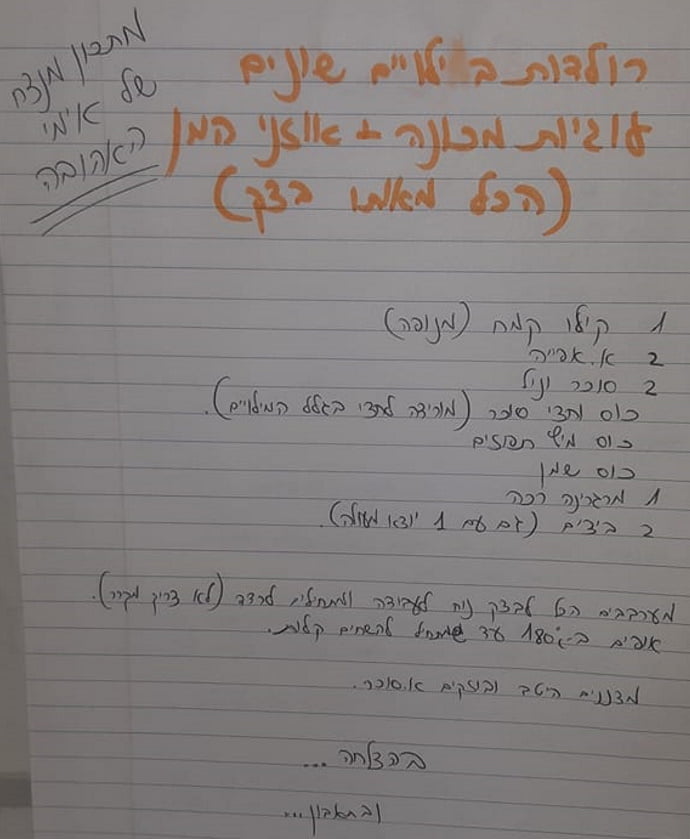 מתכון מנצח
של אימי
האהובה
רולדות במילויים שונים
עוגיות מכונה + אוזני המן
(הכל מאותו בצק)
1 קילו קמח (מנופה)
2 א.אפייה
2 סוכר וניל
כוס וחצי סוכר (מורידה לחצי בגלל המילויים).
כוס מיץ תפוזים
כוס שמן
1 מרגרינה רכה
2 ביצים (גם עם 1 יוצא מעולה).
מערבבים הכל לבצק נוח לעבודה ומתחילים לרדד (לא צריך מקרר).
אופים ב-180° עד שמתחיל להשחים קלות.
מצננים היטב ובוזקים א.סוכר.
בהצלחה ...
ובתאבון ...